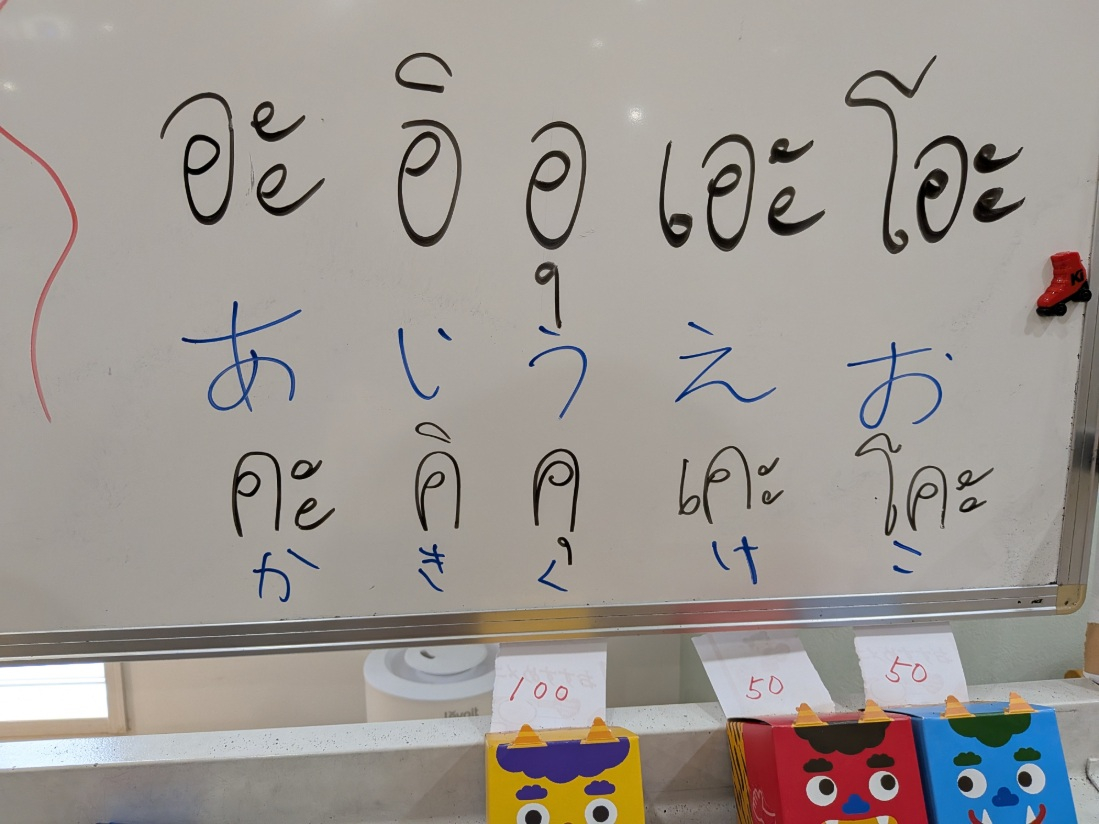 อะ อิ อุ เอะ โอะ
あ い う え お
คะ คิ คุ เคะ โคะ
か き く け こ
100 50 50